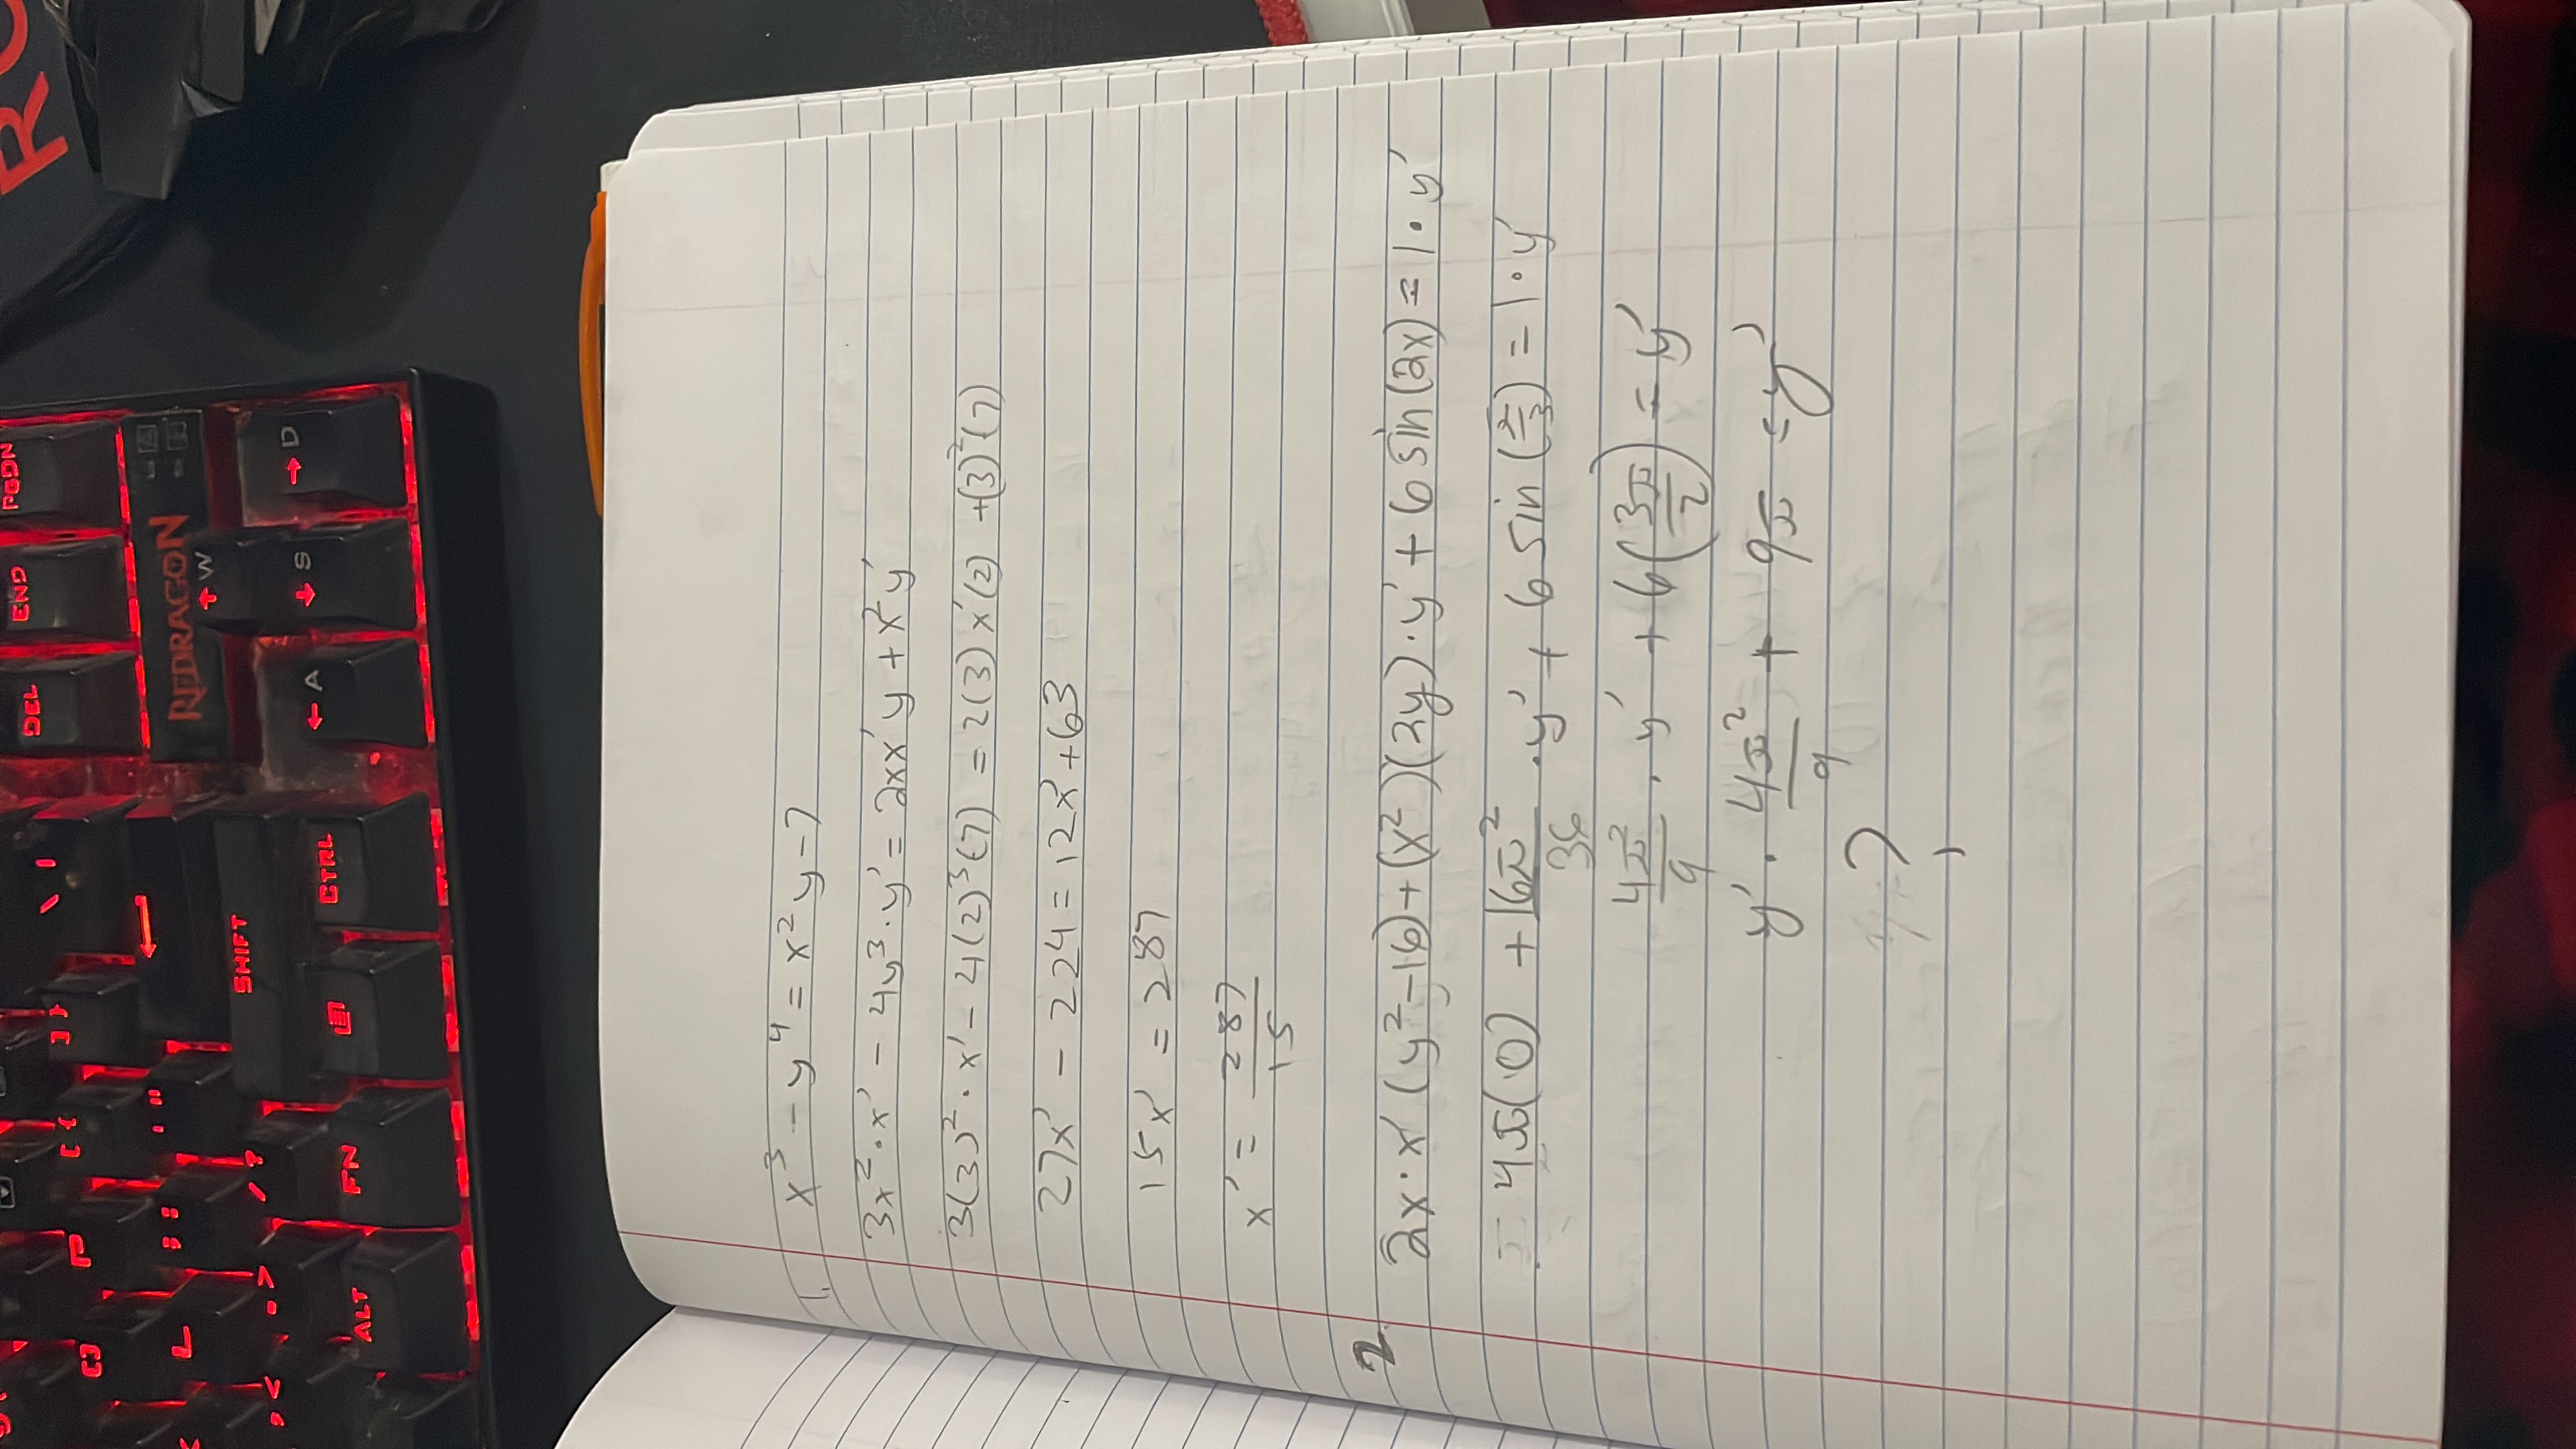 DEL END PGDN
[] P [ { ] } \ |
L ; : ' " ←
REDRAGON
, < . > / ? SHIFT ↑ W
ALT FN CTRL ← A ↓ S → D
1. x³ - y⁴ = x²y - 7
3x² · x' - 4y³ · y' = 2xx'y + x²y'
3(3)² · x' - 4(2)³(7) = 2(3)x'(2) + (3)²(7)
27x' - 224 = 12x' + 63
15x' = 287
x' = 287/15
2. 2x · x' (y² - 16) + (x²)(2y) · y' + 6 sin(2x) = 1 · y'
= 4π(0) + 16π²/36 · y' + 6 sin(π/3) = 1 · y'
4π²/9 · y' + 6(3π/2) = y'
y' · 4π²/9 + 9π = y'
?